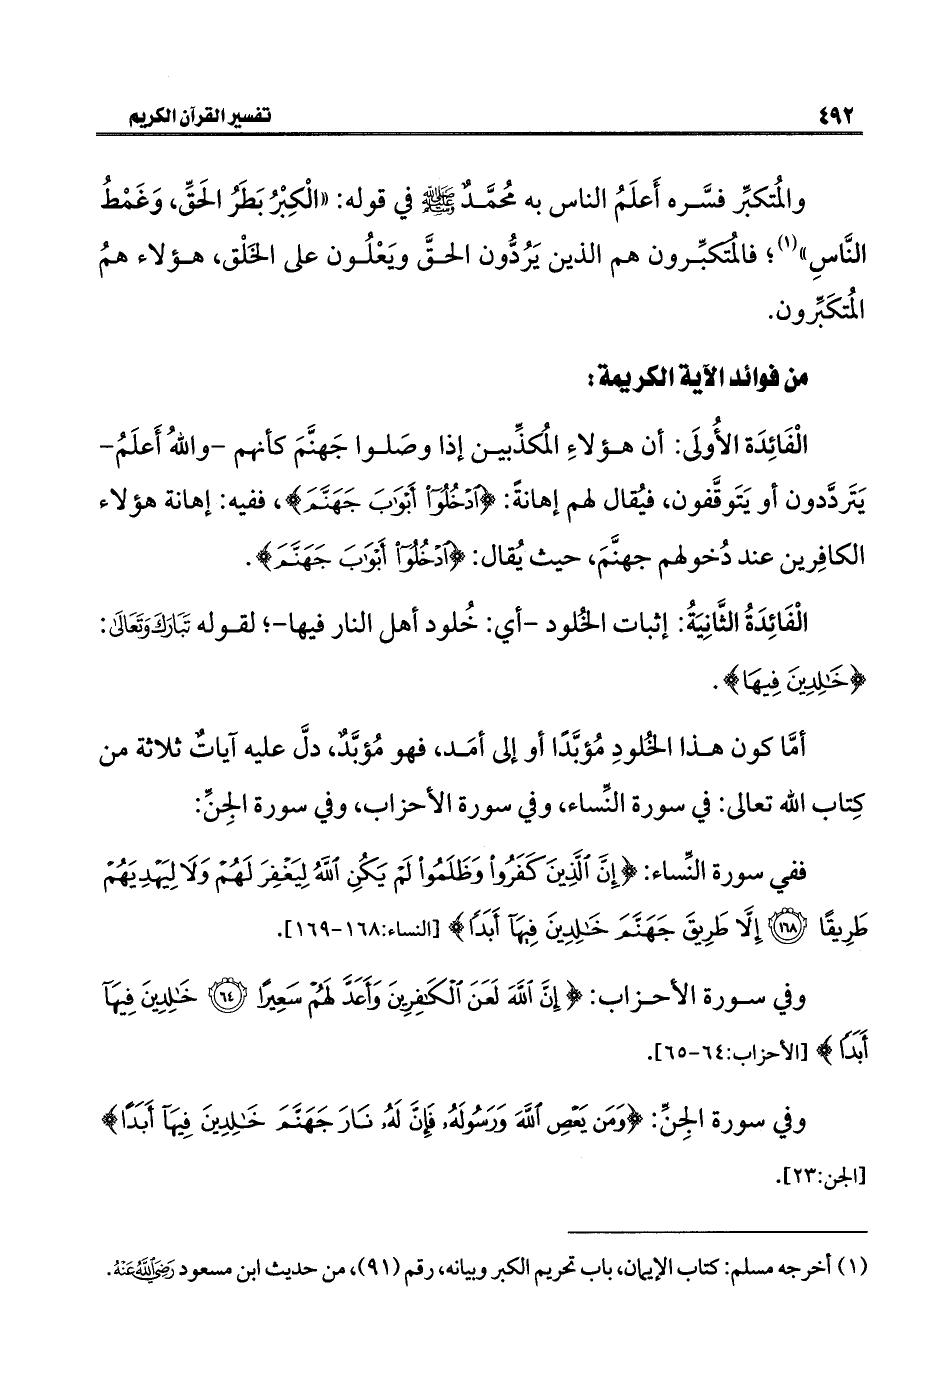 ٤٩٢ تفسير القرآن الكريم
والمُتكبِّر فسَّره أَعلَمُ الناس به مُحمَّدٌ ﷺ في قوله: «الْكِبْرُ بَطَرُ الحَقِّ، وَغَمْطُ
النَّاسِ»(١)؛ فالمُتكبِّرون هم الذين يَرُدُّون الحقَّ ويَعْلُون على الخَلْق، هؤلاء همُ
المُتكَبِّرون.
من فوائد الآية الكريمة:
الْفَائِدَة الأُولَى: أن هؤلاءِ المُكذِّبين إذا وصَلوا جَهنَّمَ كأنهم -واللهُ أَعلَمُ-
يَتَردَّدون أو يَتَوقَّفون، فيُقال لهم إهانةً: ﴿ٱدْخُلُوٓاْ أَبْوَٰبَ جَهَنَّمَ﴾، ففيه: إهانة هؤلاء
الكافِرين عند دُخولهم جهنَّمَ، حيث يُقال: ﴿ٱدْخُلُوٓاْ أَبْوَٰبَ جَهَنَّمَ﴾.
الْفَائِدَةُ الثَّانِيَةُ: إثبات الخُلود -أي: خُلود أهل النار فيها-؛ لقوله تَبَارَكَ وَتَعَالَىٰ:
﴿خَٰلِدِينَ فِيهَا﴾.
أمَّا كون هذا الخُلودِ مُؤبَّدًا أو إلى أمَد، فهو مُؤبَّدٌ، دلَّ عليه آياتٌ ثلاثة من
كِتاب الله تعالى: في سورة النِّساء، وفي سورة الأحزاب، وفي سورة الجنِّ:
ففي سورة النِّساء: ﴿إِنَّ ٱلَّذِينَ كَفَرُواْ وَظَلَمُواْ لَمْ يَكُنِ ٱللَّهُ لِيَغْفِرَ لَهُمْ وَلَا لِيَهْدِيَهُمْ
طَرِيقًا ١٦٨ إِلَّا طَرِيقَ جَهَنَّمَ خَٰلِدِينَ فِيهَآ أَبَدًا﴾ [النساء:١٦٨-١٦٩].
وفي سورة الأحزاب: ﴿إِنَّ ٱللَّهَ لَعَنَ ٱلْكَٰفِرِينَ وَأَعَدَّ لَهُمْ سَعِيرًا ٦٤ خَٰلِدِينَ فِيهَآ
أَبَدًا﴾ [الأحزاب:٦٤-٦٥].
وفي سورة الجِنِّ: ﴿وَمَن يَعْصِ ٱللَّهَ وَرَسُولَهُۥ فَإِنَّ لَهُۥ نَارَ جَهَنَّمَ خَٰلِدِينَ فِيهَآ أَبَدًا﴾
[الجن:٢٣].
(١) أخرجه مسلم: كتاب الإيمان، باب تحريم الكبر وبيانه، رقم (٩١)، من حديث ابن مسعود رَضِيَ ٱللَّهُ عَنْهُ.